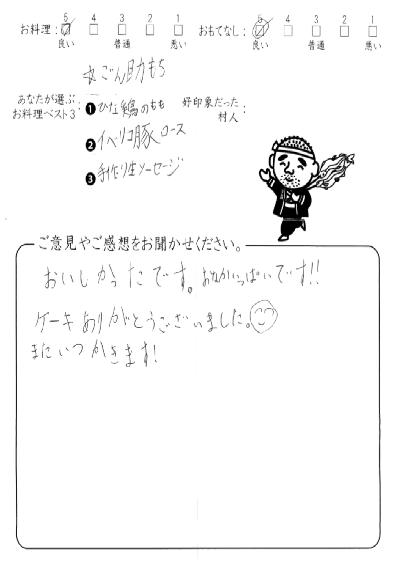 お料理： 5 4 3 2 1 おもてなし： 5 4 3 2 1
良い 普通 悪い 良い 普通 悪い
☆ごん助もち
あなたが選ぶ お料理ベスト3： ❶ひな鶏のもも
❷イベリコ豚ロース
❸手作り生ソーセージ
好印象だった 村人：
ご意見やご感想をお聞かせください。
おいしかったです。おなかいっぱいです!!
ケーキありがとうございました。
またいつかきます!